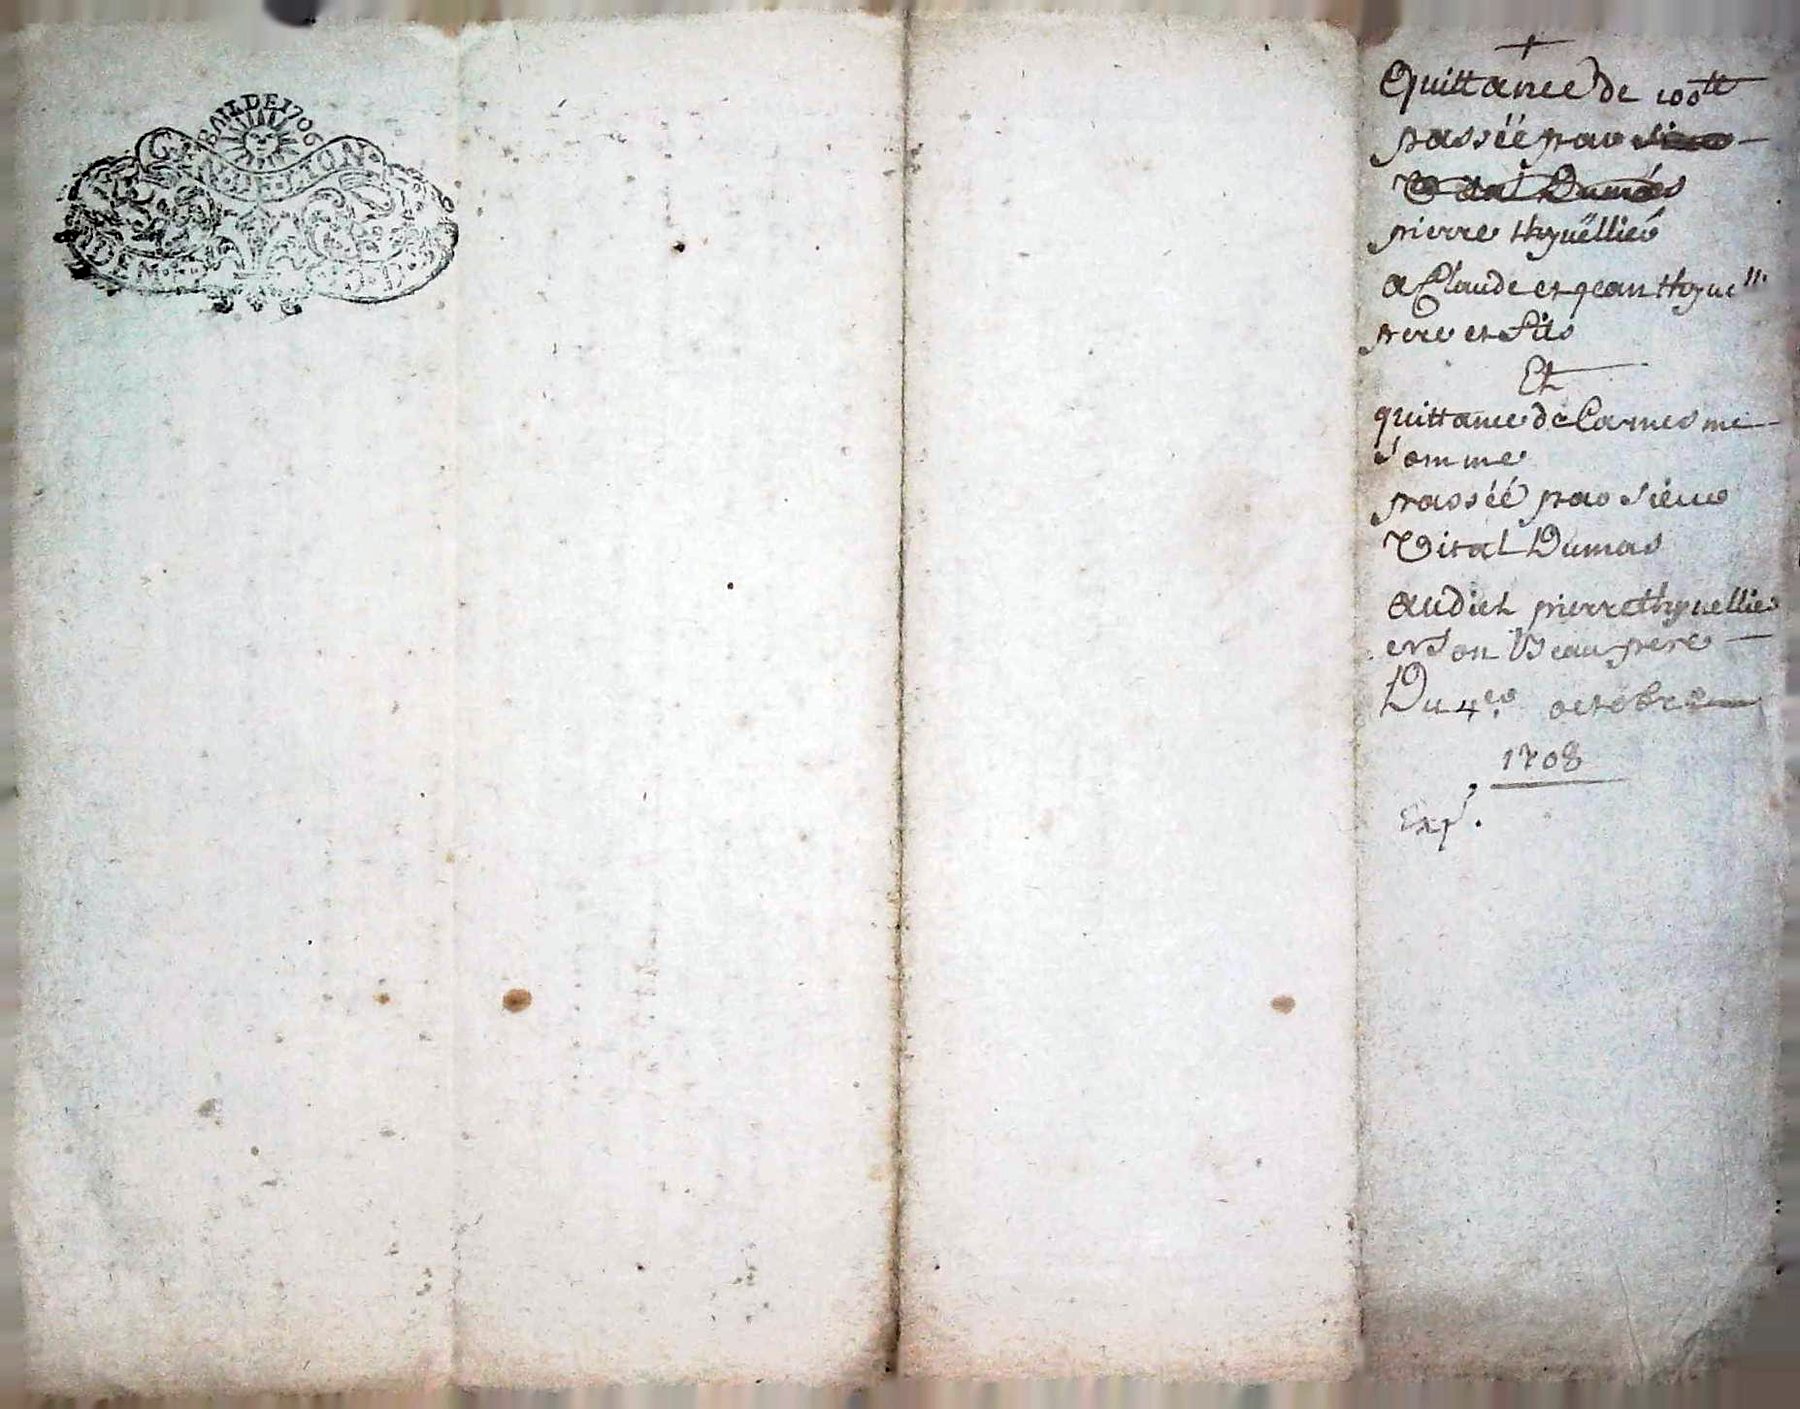 BAIL DE 1706
GEN DE LION
Quittance de 100ll
passéé par sieur
Vital Dumas
pierre thyuëllier
a Claude et jean thyuell.
pere et fils
Et
quittance de lames me
somme
passéé par sieur
Vital Dumas
audict pierre thyuellier
et son Beau pere
Du 4e. octobre
1708
Exp.